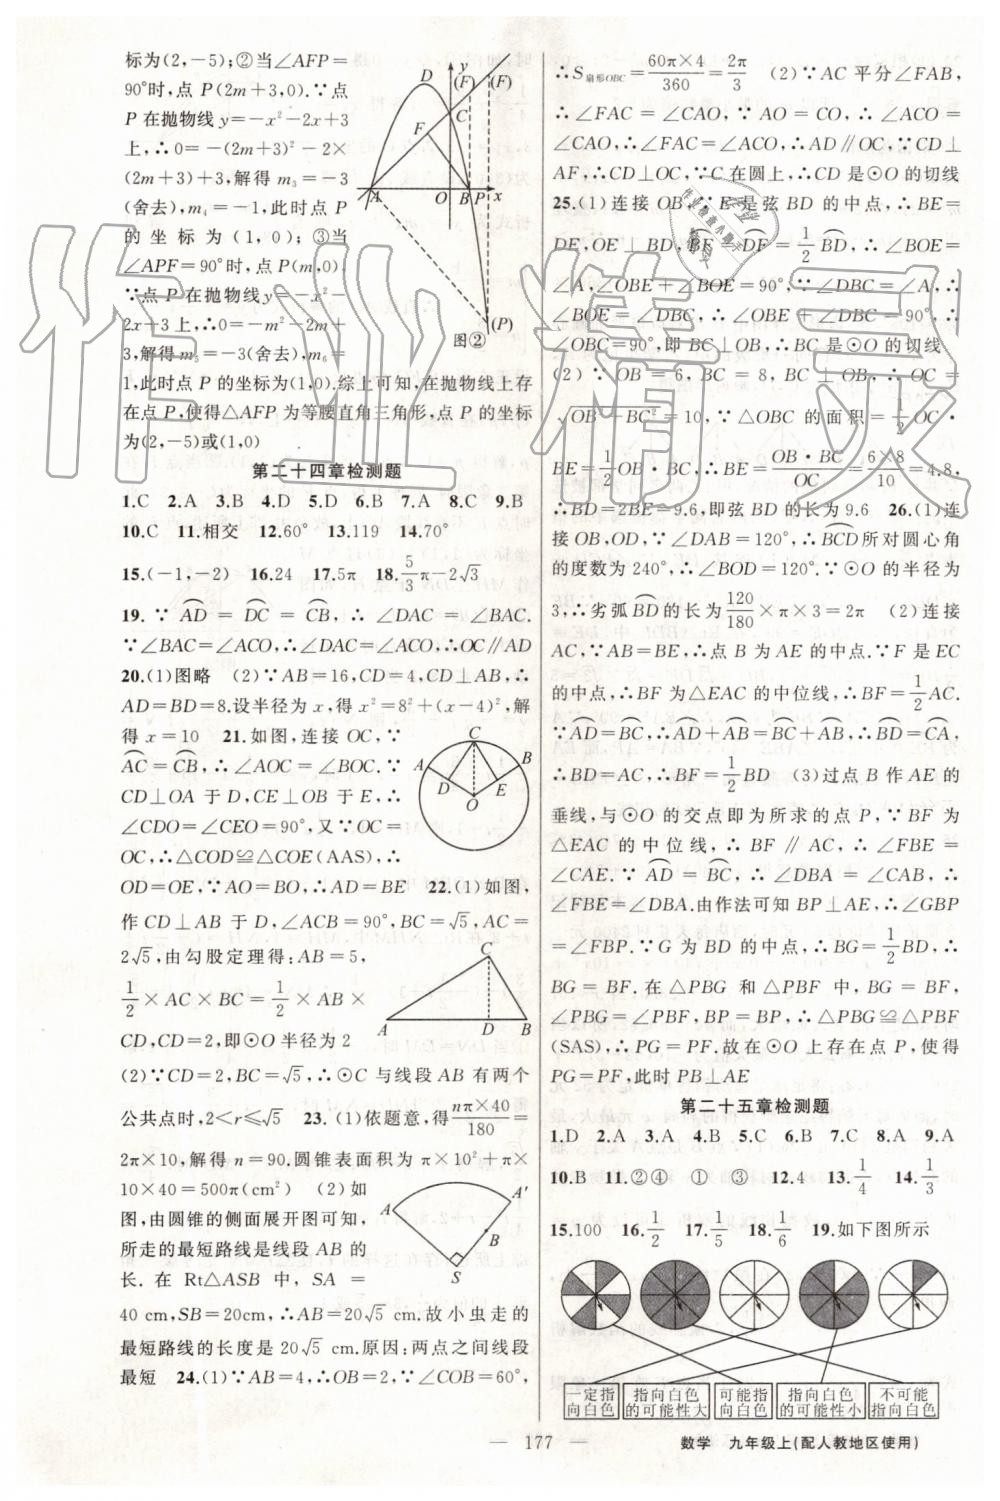 标为(2,-5);②当∠AFP=
90°时,点 P(2m+3,0).∵点
P 在抛物线 y=-x²-2x+3
上,∴0=-(2m+3)²-2×
(2m+3)+3,解得 m₃=-3
(舍去),m₄=-1,此时点 P
的坐标为(1,0);③当
∠APF=90°时,点 P(m,0).
∵点 P 在抛物线 y=-x²-
2x+3 上,∴0=-m²-2m+
3,解得 m₅=-3(舍去),m₆=
1,此时点 P 的坐标为(1,0).综上可知,在抛物线上存
在点 P,使得△AFP 为等腰直角三角形,点 P 的坐标
为(2,-5)或(1,0)
D y (F) (F)
C
F
A O B P x
(P)
图②
第二十四章检测题
1.C 2.A 3.B 4.D 5.D 6.B 7.A 8.C 9.B
10.C 11.相交 12.60° 13.119 14.70°
15.(-1,-2) 16.24 17.5π 18.5/3π-2√3
19.∵AD⌒=DC⌒=CB⌒,∴∠DAC=∠BAC.
∵∠BAC=∠ACO,∴∠DAC=∠ACO,∴OC∥AD
20.(1)图略 (2)∵AB=16,CD=4,CD⊥AB,∴
AD=BD=8.设半径为 x,得 x²=8²+(x-4)²,解
得 x=10 21.如图,连接 OC,∵
AC⌒=CB⌒,∴∠AOC=∠BOC.∵
CD⊥OA 于 D,CE⊥OB 于 E,∴
∠CDO=∠CEO=90°,又∵OC=
OC,∴△COD≌△COE(AAS),∴
OD=OE,∵AO=BO,∴AD=BE 22.(1)如图,
C
A B
D E
O
作 CD⊥AB 于 D,∠ACB=90°,BC=√5,AC=
2√5,由勾股定理得:AB=5,
1/2×AC×BC=1/2×AB×
CD,CD=2,即⊙O 半径为 2
C
A D B
(2)∵CD=2,BC=√5,∴⊙C 与线段 AB 有两个
公共点时,2<r≤√5 23.(1)依题意,得nπ×40/180=
2π×10,解得 n=90.圆锥表面积为 π×10²+π×
10×40=500π(cm²) (2)如
图,由圆锥的侧面展开图可知,
所走的最短路线是线段 AB 的
长.在 Rt△ASB 中,SA=
40 cm,SB=20cm,∴AB=20√5 cm.故小虫走的
最短路线的长度是 20√5 cm.原因:两点之间线段
最短 24.(1)∵AB=4,∴OB=2,∵∠COB=60°,
A A′
B
S
∴S扇形OBC=60π×4/360=2π/3 (2)∵AC 平分∠FAB,
∴∠FAC=∠CAO,∵AO=CO,∴∠ACO=
∠CAO,∴∠FAC=∠ACO,∴AD∥OC,∵CD⊥
AF,∴CD⊥OC,∵C 在圆上,∴CD 是⊙O 的切线
25.(1)连接 OB,∵E 是弦 BD 的中点,∴BE=
DE,OE⊥BD,BF⌒=DF⌒=1/2BD⌒,∴∠BOE=
∠A,∠OBE+∠BOE=90°,∵∠DBC=∠A,∴
∠BOE=∠DBC,∴∠OBE+∠DBC=90°,∴
∠OBC=90°,即 BC⊥OB,∴BC 是⊙O 的切线
(2)∵OB=6,BC=8,BC⊥OB,∴OC=
√OB²+BC²=10,∵△OBC 的面积=1/2OC·
BE=1/2OB·BC,∴BE=OB·BC/OC=6×8/10=4.8,
∴BD=2BE=9.6,即弦 BD 的长为 9.6 26.(1)连
接 OB,OD,∵∠DAB=120°,∴BCD⌒所对圆心角
的度数为 240°,∴∠BOD=120°.∵⊙O 的半径为
3,∴劣弧BD⌒的长为120/180×π×3=2π (2)连接
AC,∵AB=BE,∴点 B 为 AE 的中点.∵F 是 EC
的中点,∴BF 为△EAC 的中位线,∴BF=1/2AC.
∵AD⌒=BC⌒,∴AD⌒+AB⌒=BC⌒+AB⌒,∴BD⌒=CA⌒,
∴BD=AC,∴BF=1/2BD (3)过点 B 作 AE 的
垂线,与⊙O 的交点即为所求的点 P,∵BF 为
△EAC 的中位线,∴BF∥AC,∴∠FBE=
∠CAE.∵AD⌒=BC⌒,∴∠DBA=∠CAB,∴
∠FBE=∠DBA.由作法可知 BP⊥AE,∴∠GBP
=∠FBP.∵G 为 BD 的中点,∴BG=1/2BD,∴
BG=BF.在△PBG 和△PBF 中,BG=BF,
∠PBG=∠PBF,BP=BP,∴△PBG≌△PBF
(SAS),∴PG=PF.故在⊙O 上存在点 P,使得
PG=PF,此时 PB⊥AE
第二十五章检测题
1.D 2.A 3.A 4.B 5.C 6.B 7.C 8.A 9.A
10.B 11.②④ ① ③ 12.4 13.1/4 14.1/3
15.100 16.1/2 17.1/5 18.1/6 19.如下图所示
一定指向白色 指向白色的可能性大 可能指向白色 指向白色的可能性小 不可能指向白色
— 177 — 数学 九年级上(配人教地区使用)
作业精灵